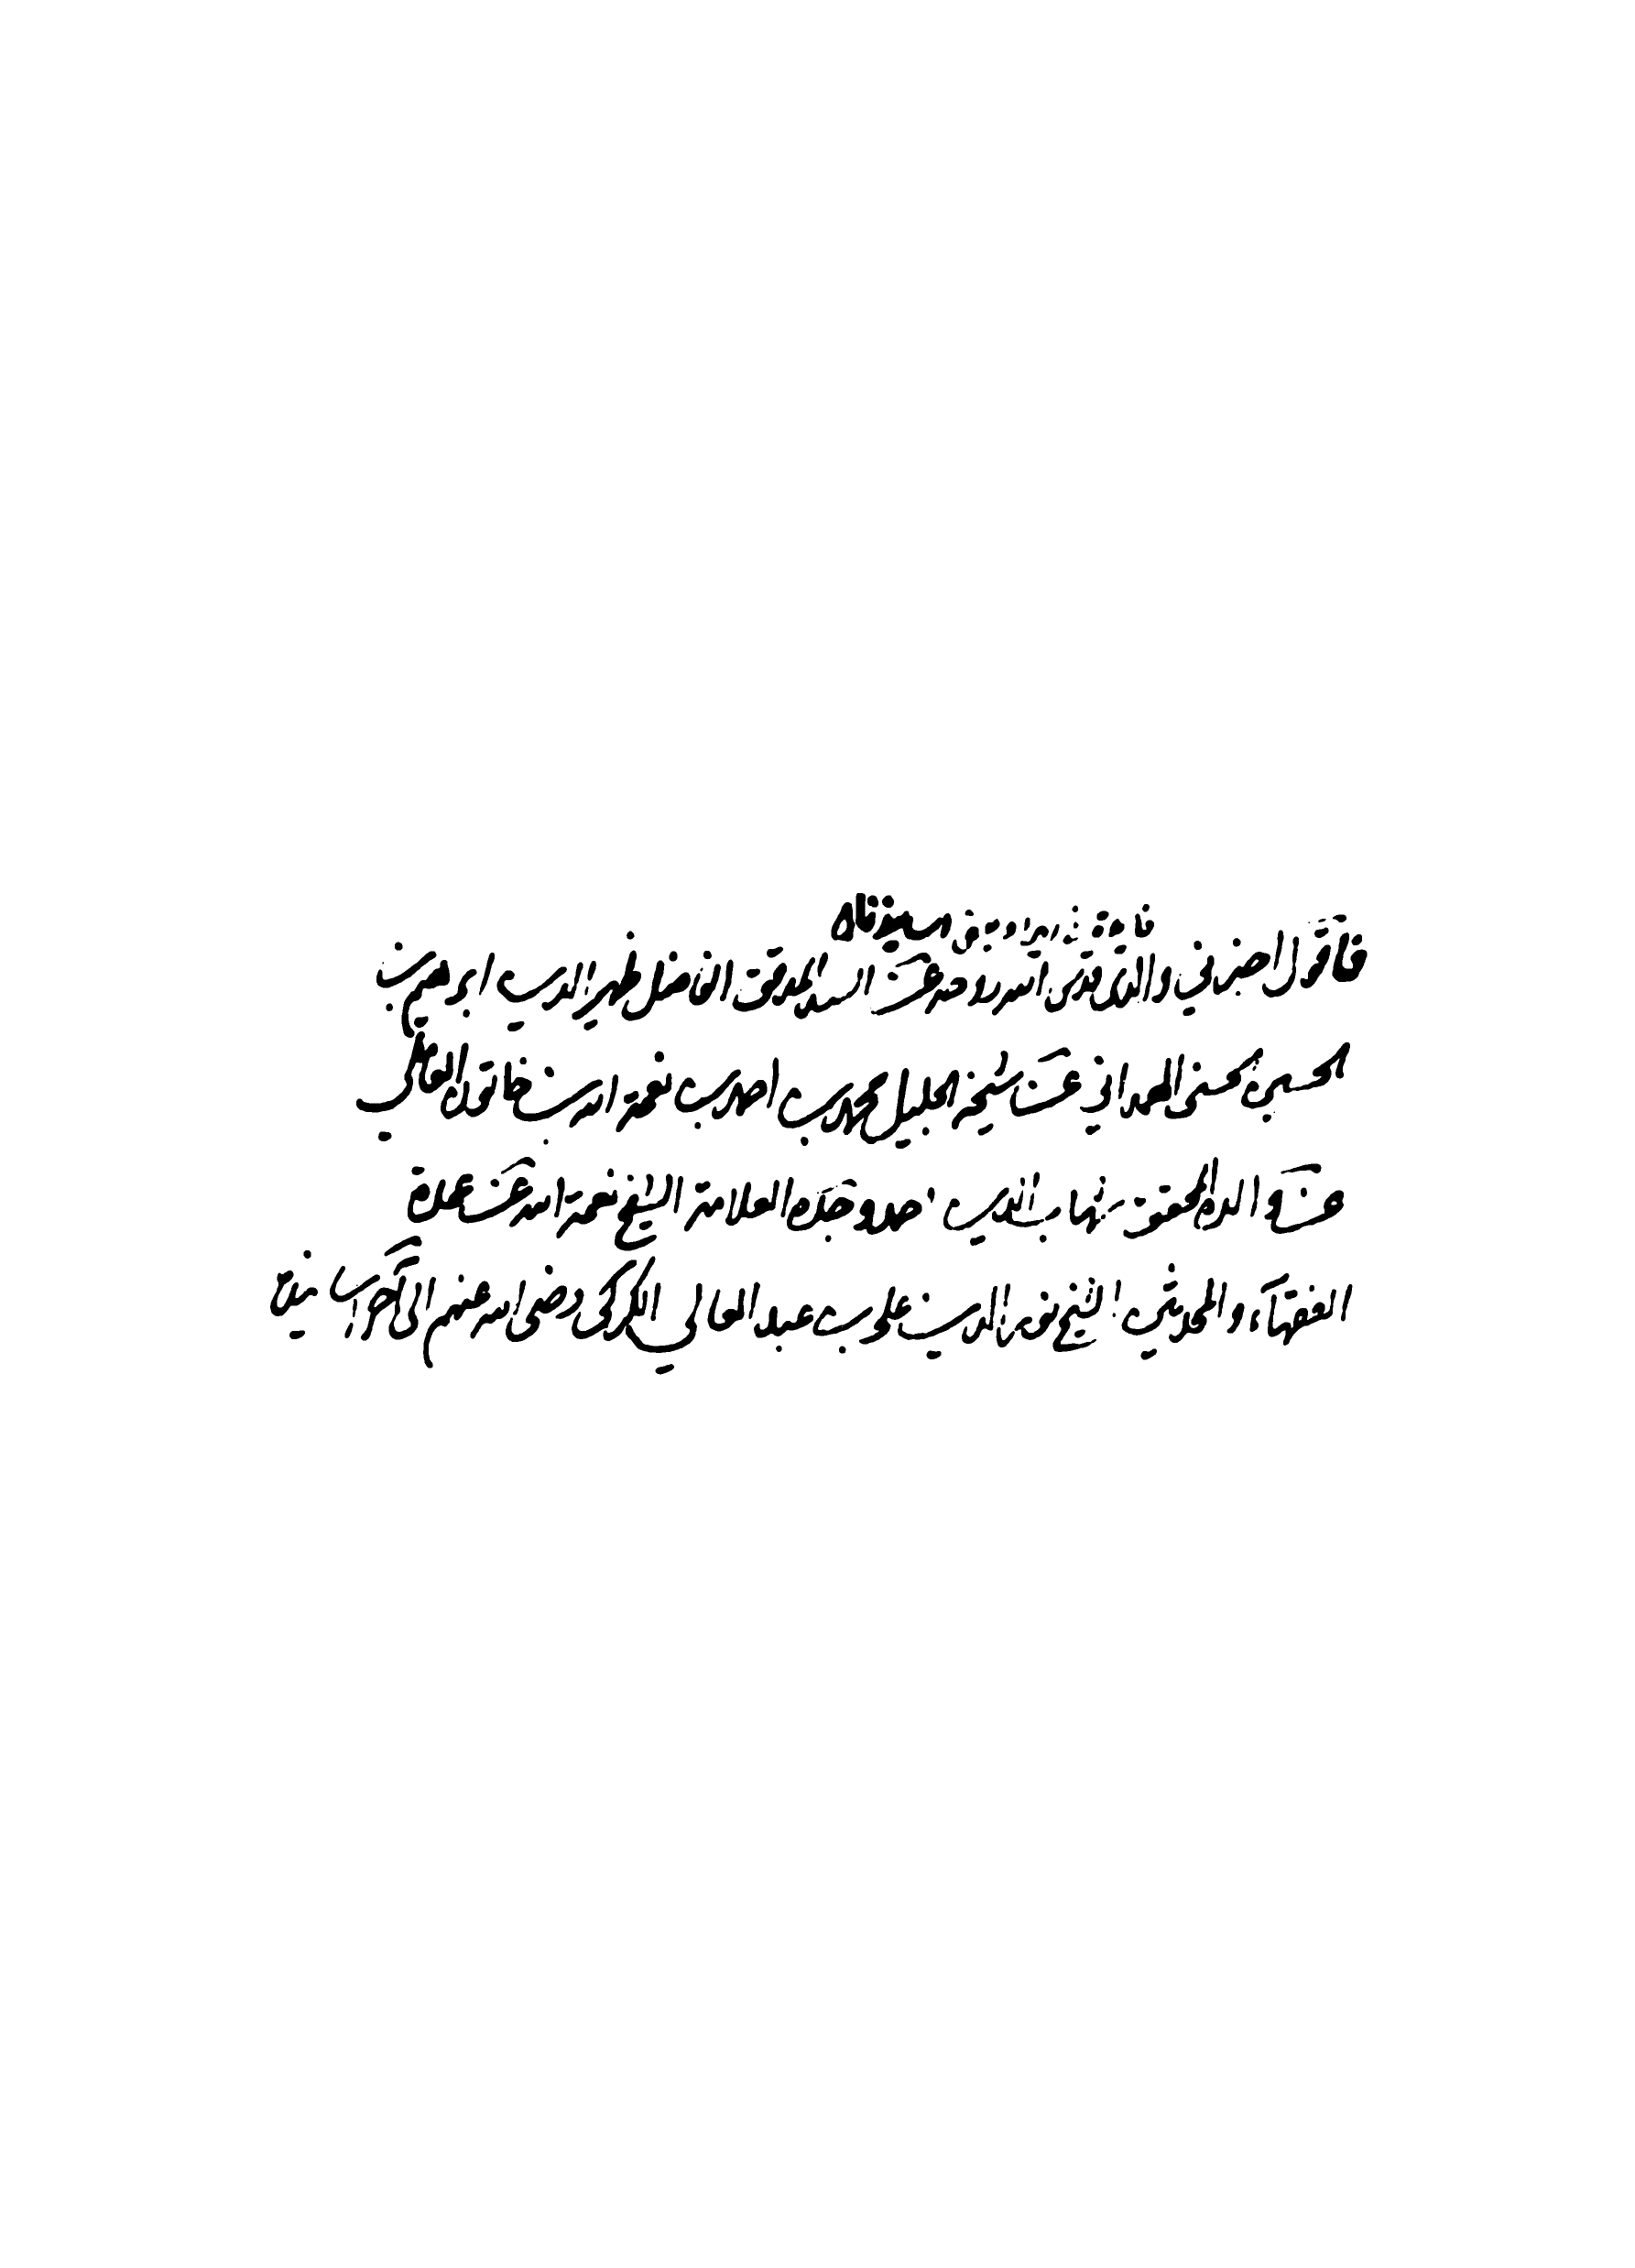 فأقول اخبرني والدي قدس الله روحه عن السيد المدقق الفاضل ظهير الدين ابرهيم بن
الحسين الحسني الهمداني عن شيخه الجليل محمد بن احمد بن نعمة الله بن خاتون العاملي
عن والده المحقق شهاب الدين احمد وجده العلامة الشيخ نعمة الله عن عمدة
الفقهآء والمحدثين الشيخ نور الدين علي بن عبد العالي الكركي رضي الله عنهم الى آخر اسانيده